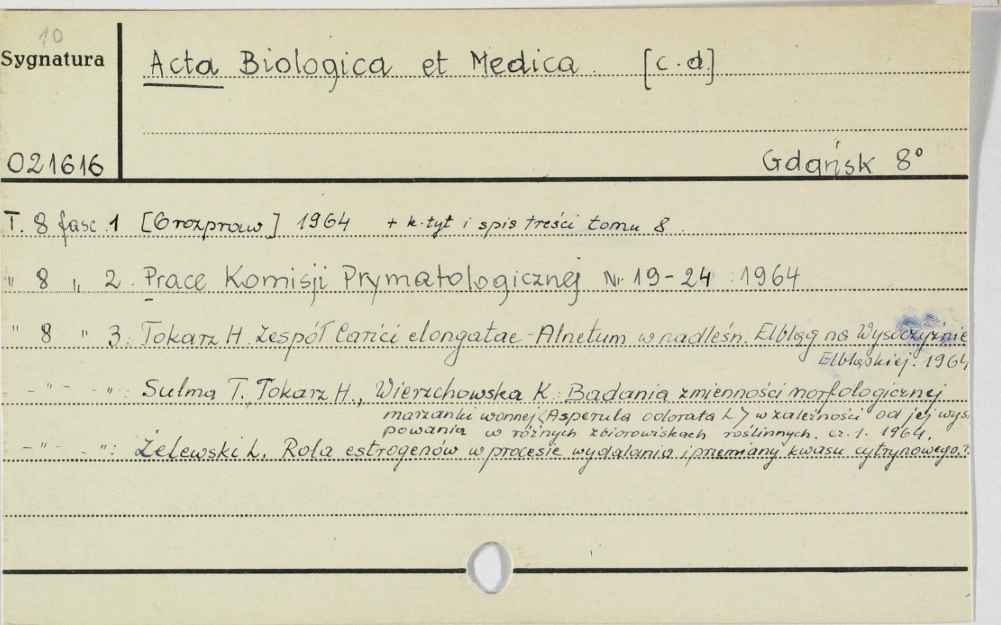 10
Sygnatura
Acta Biologica et Medica. [c.d.]
021616
Gdańsk 8°
T. 8 fasc. 1 [6 rozpraw] 1964 + k. tyt i spis treści tomu 8.
" 8 " 2. Prace Komisji Prymatologicznej Nr 19-24 : 1964
" 8 " 3: Tokarz H. Zespół Carici elongatae - Alnetum w nadleśn. Elbląg na Wysoczyźnie
Elbląskiej. 1964
- " - - " : Sulma T., Tokarz H., Wierzchowska K. Badania zmienności morfologicznej
marzanki wonnej (Asperula odorata L.) w zależności od jej wys
powania w różnych zbiorowiskach roślinnych. cz. 1. 1964.
- " - - " : Żelewski L. Rola estrogenów w procesie wydalania i przemiany kwasu cytrynowego.